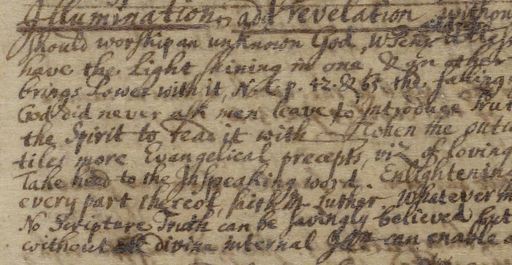 Illumination, and revelation, without
should worship an unknown God,
have the Light shining in one & yn other
brings Power with it, N.E. p. 42. & 65 the savings
God did never ask men leave to introduce Truth
the Spirit to teach it with when the
tiles more Evangelical precepts, viz of loving
Take heed to the Inspeaking word, Enlightening
every part thereof, saith M. Luther. Whatever
No Scripture Truth can be savingly believed but
without divine internal can enable